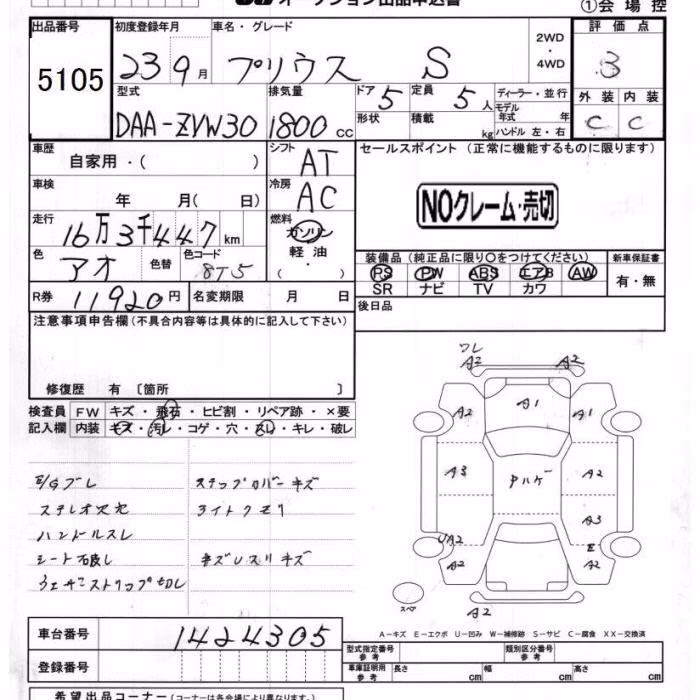 オークション出品申込書
①会場控
出品番号 5105
初度登録年月 23 9月
車名・グレード プリウス S
2WD・4WD
評価点 3
型式 DAA-ZVW30
排気量 1800 cc
ドア 5
定員 5人
形状
積載 kg
ディーラー・並行
モデル年式 年
ハンドル 左・右
外装 C
内装 C
車歴 自家用・( )
シフト AT
セールスポイント (正常に機能するものに限ります)
NOクレーム・売切
車検 年 月( 日)
冷房 AC
走行 16万3千447km
燃料 ガソリン・軽油・( )
色 アオ
色替
色コード 8T5
装備品 (純正品に限り○をつけてください)
PS PW ABS エアB AW
SR ナビ TV カワ
新車保証書 有・無
R券 11920円
名変期限 月 日
後日品
注意事項申告欄(不具合内容等は具体的に記入して下さい)
修復歴 有 〔箇所 〕
検査員記入欄
FW キズ・飛石・ヒビ割・リペア跡・×要
内装 キズ・汚レ・コゲ・穴・スレ・キレ・破レ
E/Gブレ
ステップカバーキズ
ハンドルスレ
ワレ
A2 A2
A2 A1 A1
A3 Pハゲ A2
A3
UA2 E
A2 A2
スペア
A2
A-キズ E-エクボ U-凹み W-補修跡 S-サビ C-腐食 XX-交換済
車台番号 1424305
登録番号
型式指定番号
類別区分番号
車庫証明用参考 長さ cm 幅 cm 高さ cm
希望出品コーナー (コーナーは各会場により異なります。)